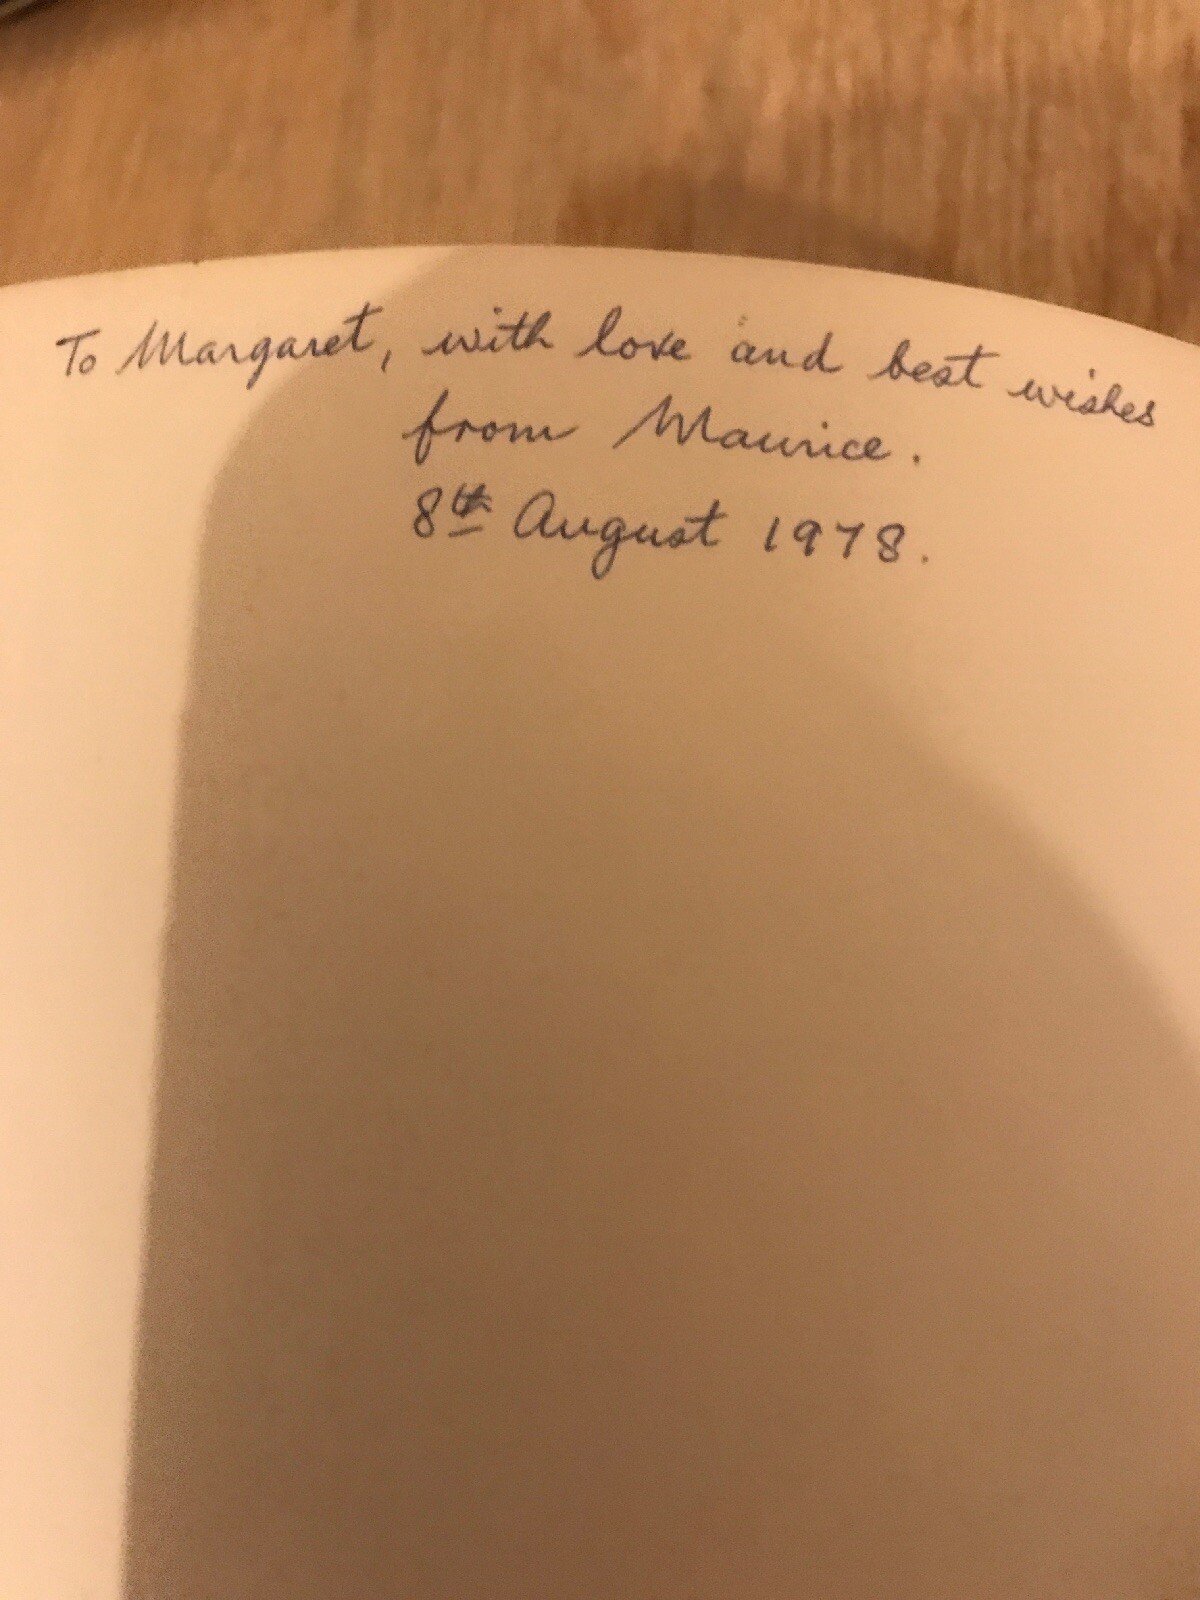 To Margaret, with love and best wishes
from Maurice.
8th August 1978.